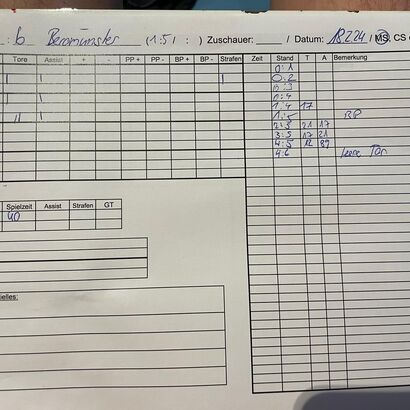 : 6 Beromünster (1:5/ : ) Zuschauer: / Datum: 18.2.24 / MS, CS
Tore Assist + - PP + PP - BP + BP - Strafen
I I I
I
II I
Spielzeit Assist Strafen GT
40
ielles:
Zeit Stand T A Bemerkung
0:1
0:2
0:3
1:4
1:4 17
1:5 BP
2:5 21 17
3:5 17 21
4:5 12 89
4:6 leere Tor